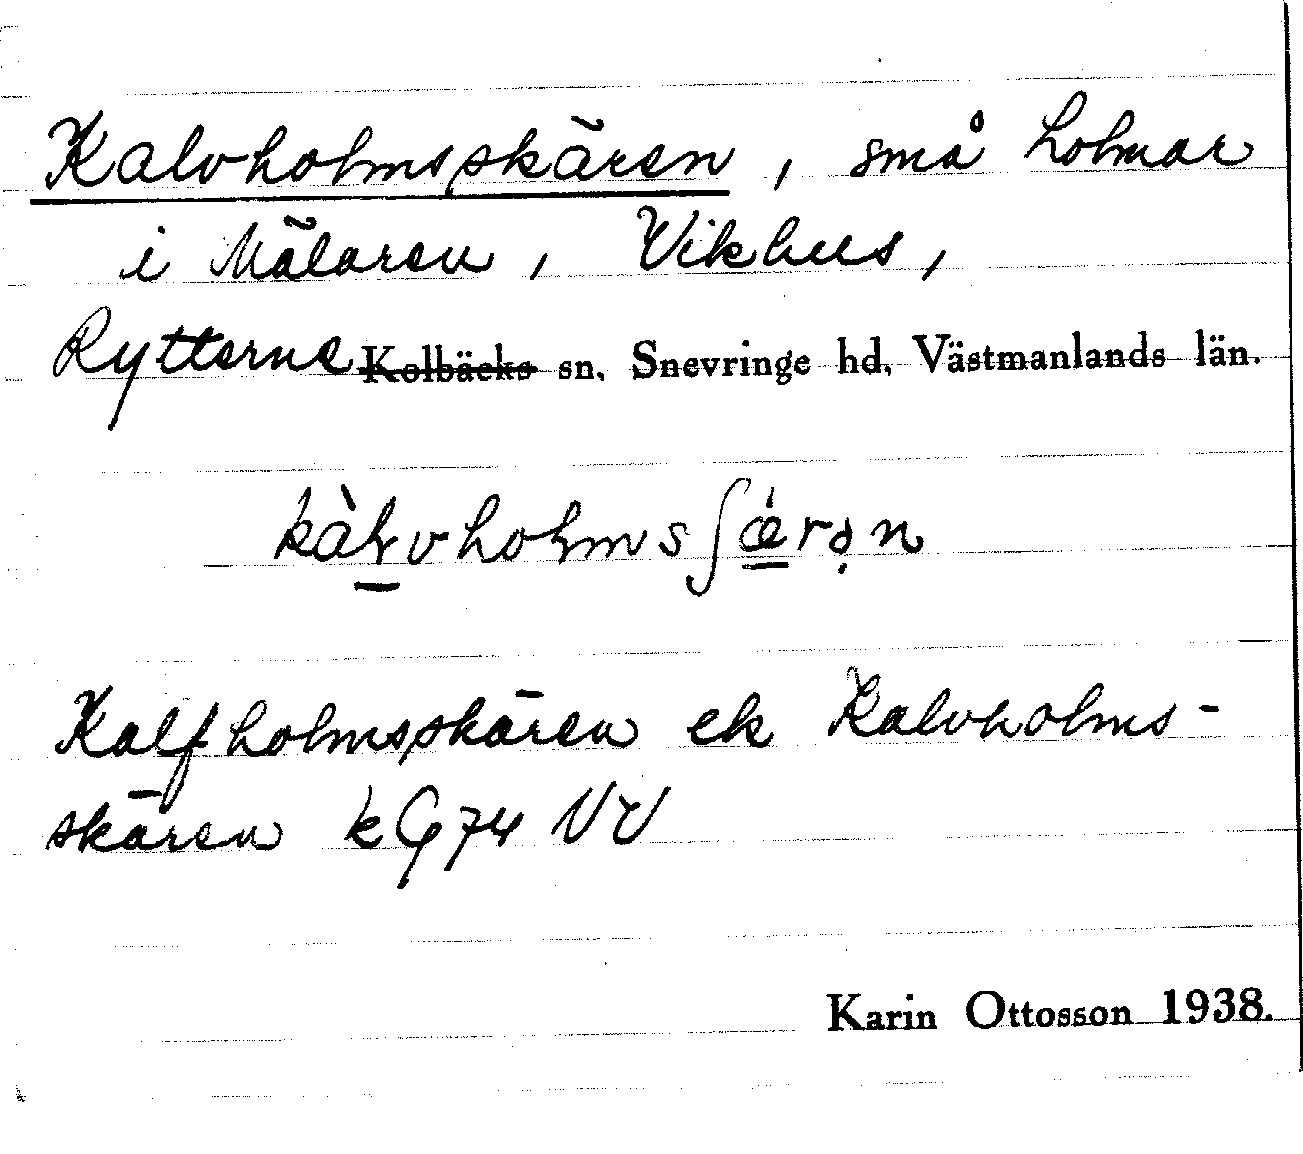 Kalvholmsskären, små holmar
i Mälaren, Vikhus,
Rytterne Kolbäcks sn, Snevringe hd, Västmanlands län.
kàɽvhoɽmsʃǽrən
Kalfholmsskären ek Kalvholms-
skären kG74 NV
Karin Ottosson 1938.